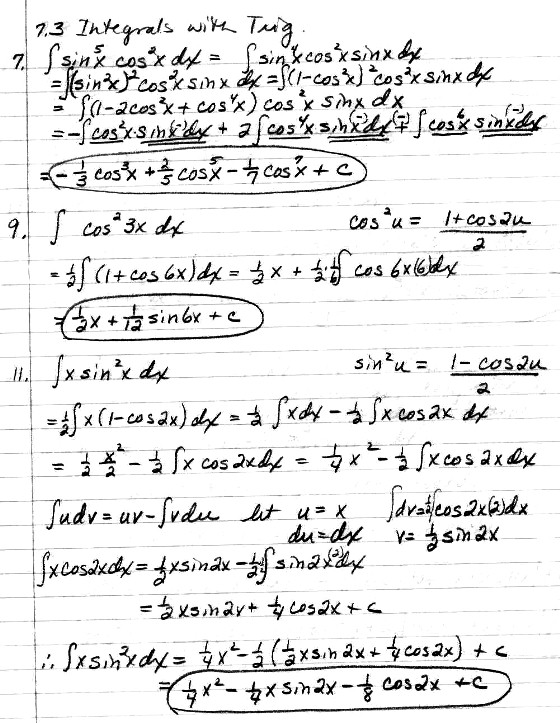 7.3 Integrals with Trig.
7. ∫ sin⁵x cos²x dx = ∫ sin⁴x cos²x sinx dx
= ∫(sin²x)² cos²x sinx dx = ∫(1-cos²x)² cos²x sinx dx
= ∫(1-2cos²x + cos⁴x) cos²x sinx dx
= -∫ cos²x sinx(-)dx + 2∫ cos⁴x sinx(-)dx (-)+ ∫ cos⁶x sinx(-)dx
= -1/3 cos³x + 2/5 cos⁵x - 1/7 cos⁷x + c
9. ∫ cos²3x dx cos²u = (1+cos2u)/2
= 1/2∫(1+cos6x)dx = 1/2x + 1/2·1/6∫ cos6x(6)dx
= 1/2x + 1/12 sin6x + c
11. ∫x sin²x dx sin²u = (1-cos2u)/2
= 1/2∫x(1-cos2x)dx = 1/2∫xdx - 1/2∫x cos2x dx
= 1/2 x²/2 - 1/2∫x cos2xdx = 1/4x² - 1/2∫x cos2xdx
∫udv = uv - ∫vdu let u = x ∫dv = 1/2∫cos2x(2)dx
du = dx v = 1/2 sin2x
∫xcos2xdx = 1/2xsin2x - 1/2·1/2∫ sin2x(2)dx
= 1/2xsin2x + 1/4cos2x + c
∴ ∫xsin²xdx = 1/4x² - 1/2(1/2xsin2x + 1/4cos2x) + c
= 1/4x² - 1/4xsin2x - 1/8 cos2x + c